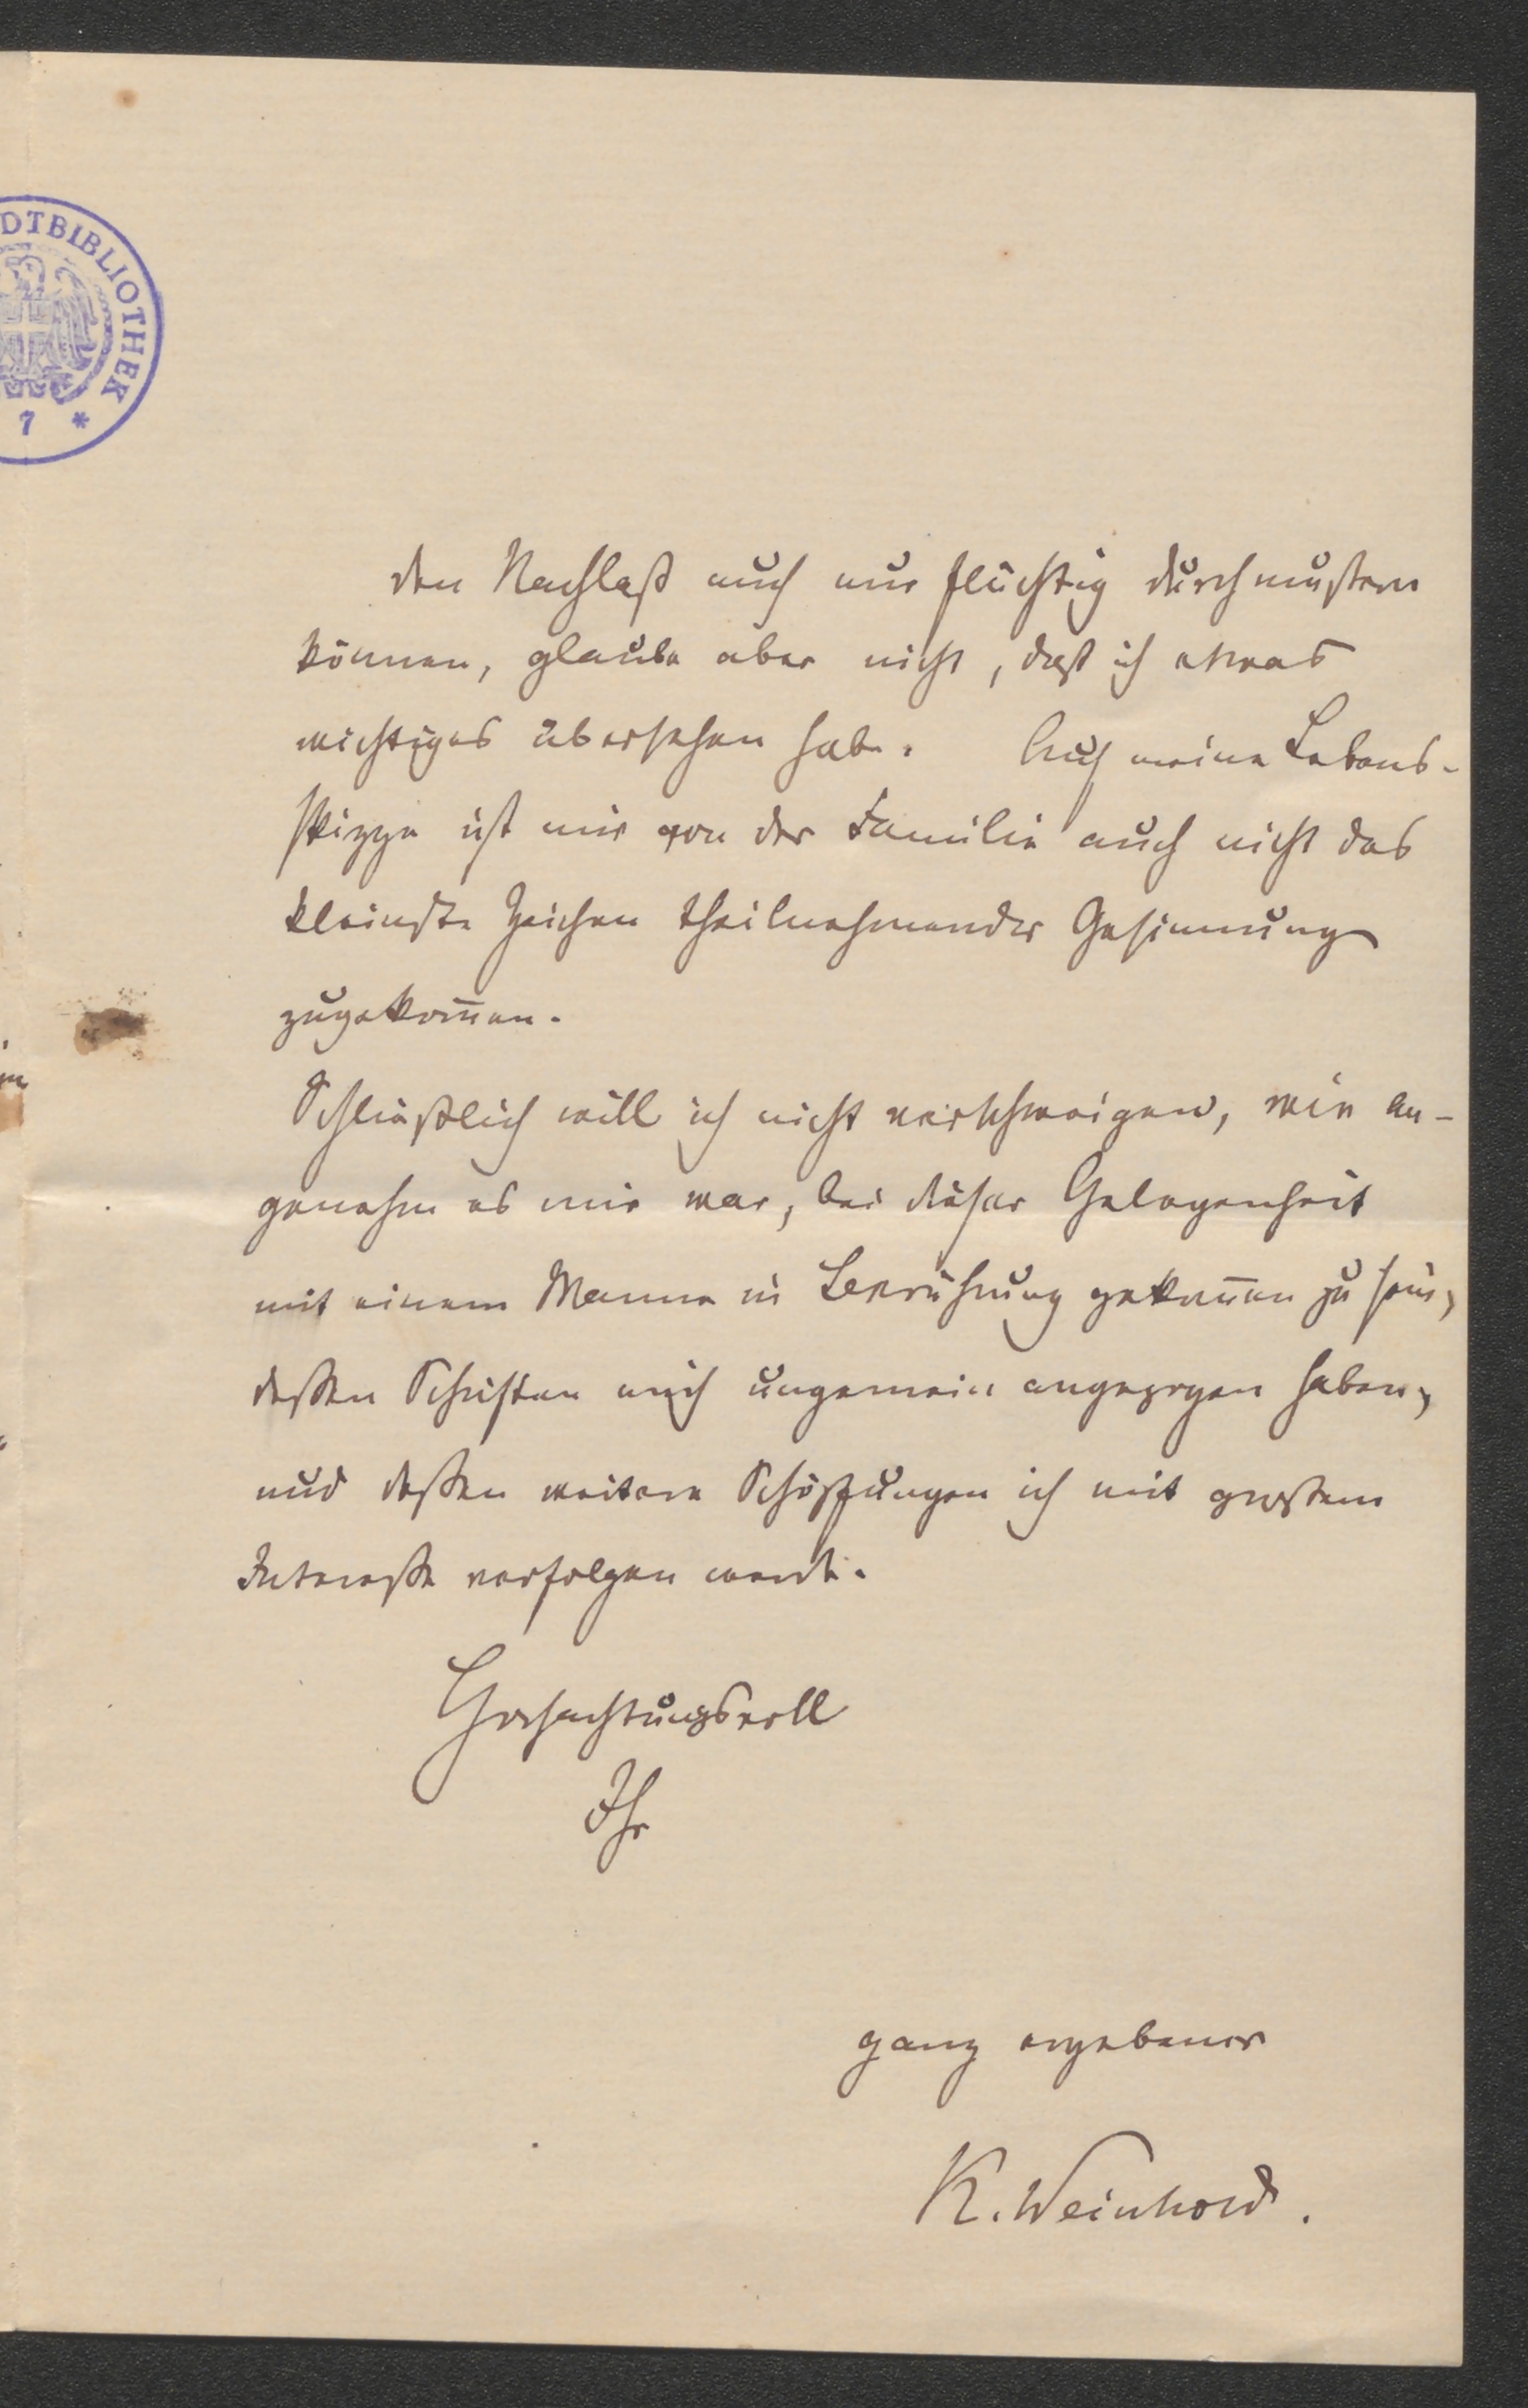 DTBIBLIOTHEK
7 *
den Nachlaß auch nur flüchtig durchmustern
können, glaube aber nicht, daß ich etwas
wichtiges übersehen habe. Auf meine Lebens-
skizze ist mir von der Familie auch nicht das
kleinste Zeichen theilnehmender Gesinnung
zugekom̄en.
Schließlich will ich nicht verschweigen, wie an-
genehm es mir war, bei dieser Gelegenheit
mit einem Manne in Berührung gekom̄en zu sein,
deßen Schriften mich ungemein angezogen haben,
und deßen weitere Schöpfungen ich mit großem
Intereße verfolgen werde.
Hochachtungsvoll
Ihr
ganz ergebener
K. Weinhold.